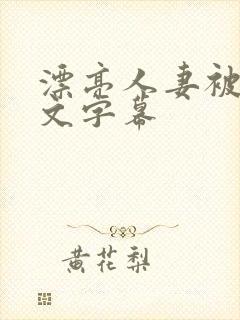 漂亮人妻被
文字幕
黄花梨